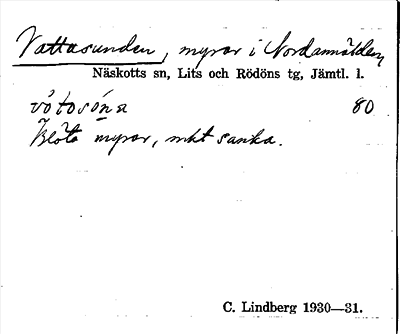 Vattasunden, myrar i Nordannälden,
Näskotts sn, Lits och Rödöns tg, Jämtl. l.
våtosóna 80
Blöta myrar, mkt sanka.
C. Lindberg 1930—31.